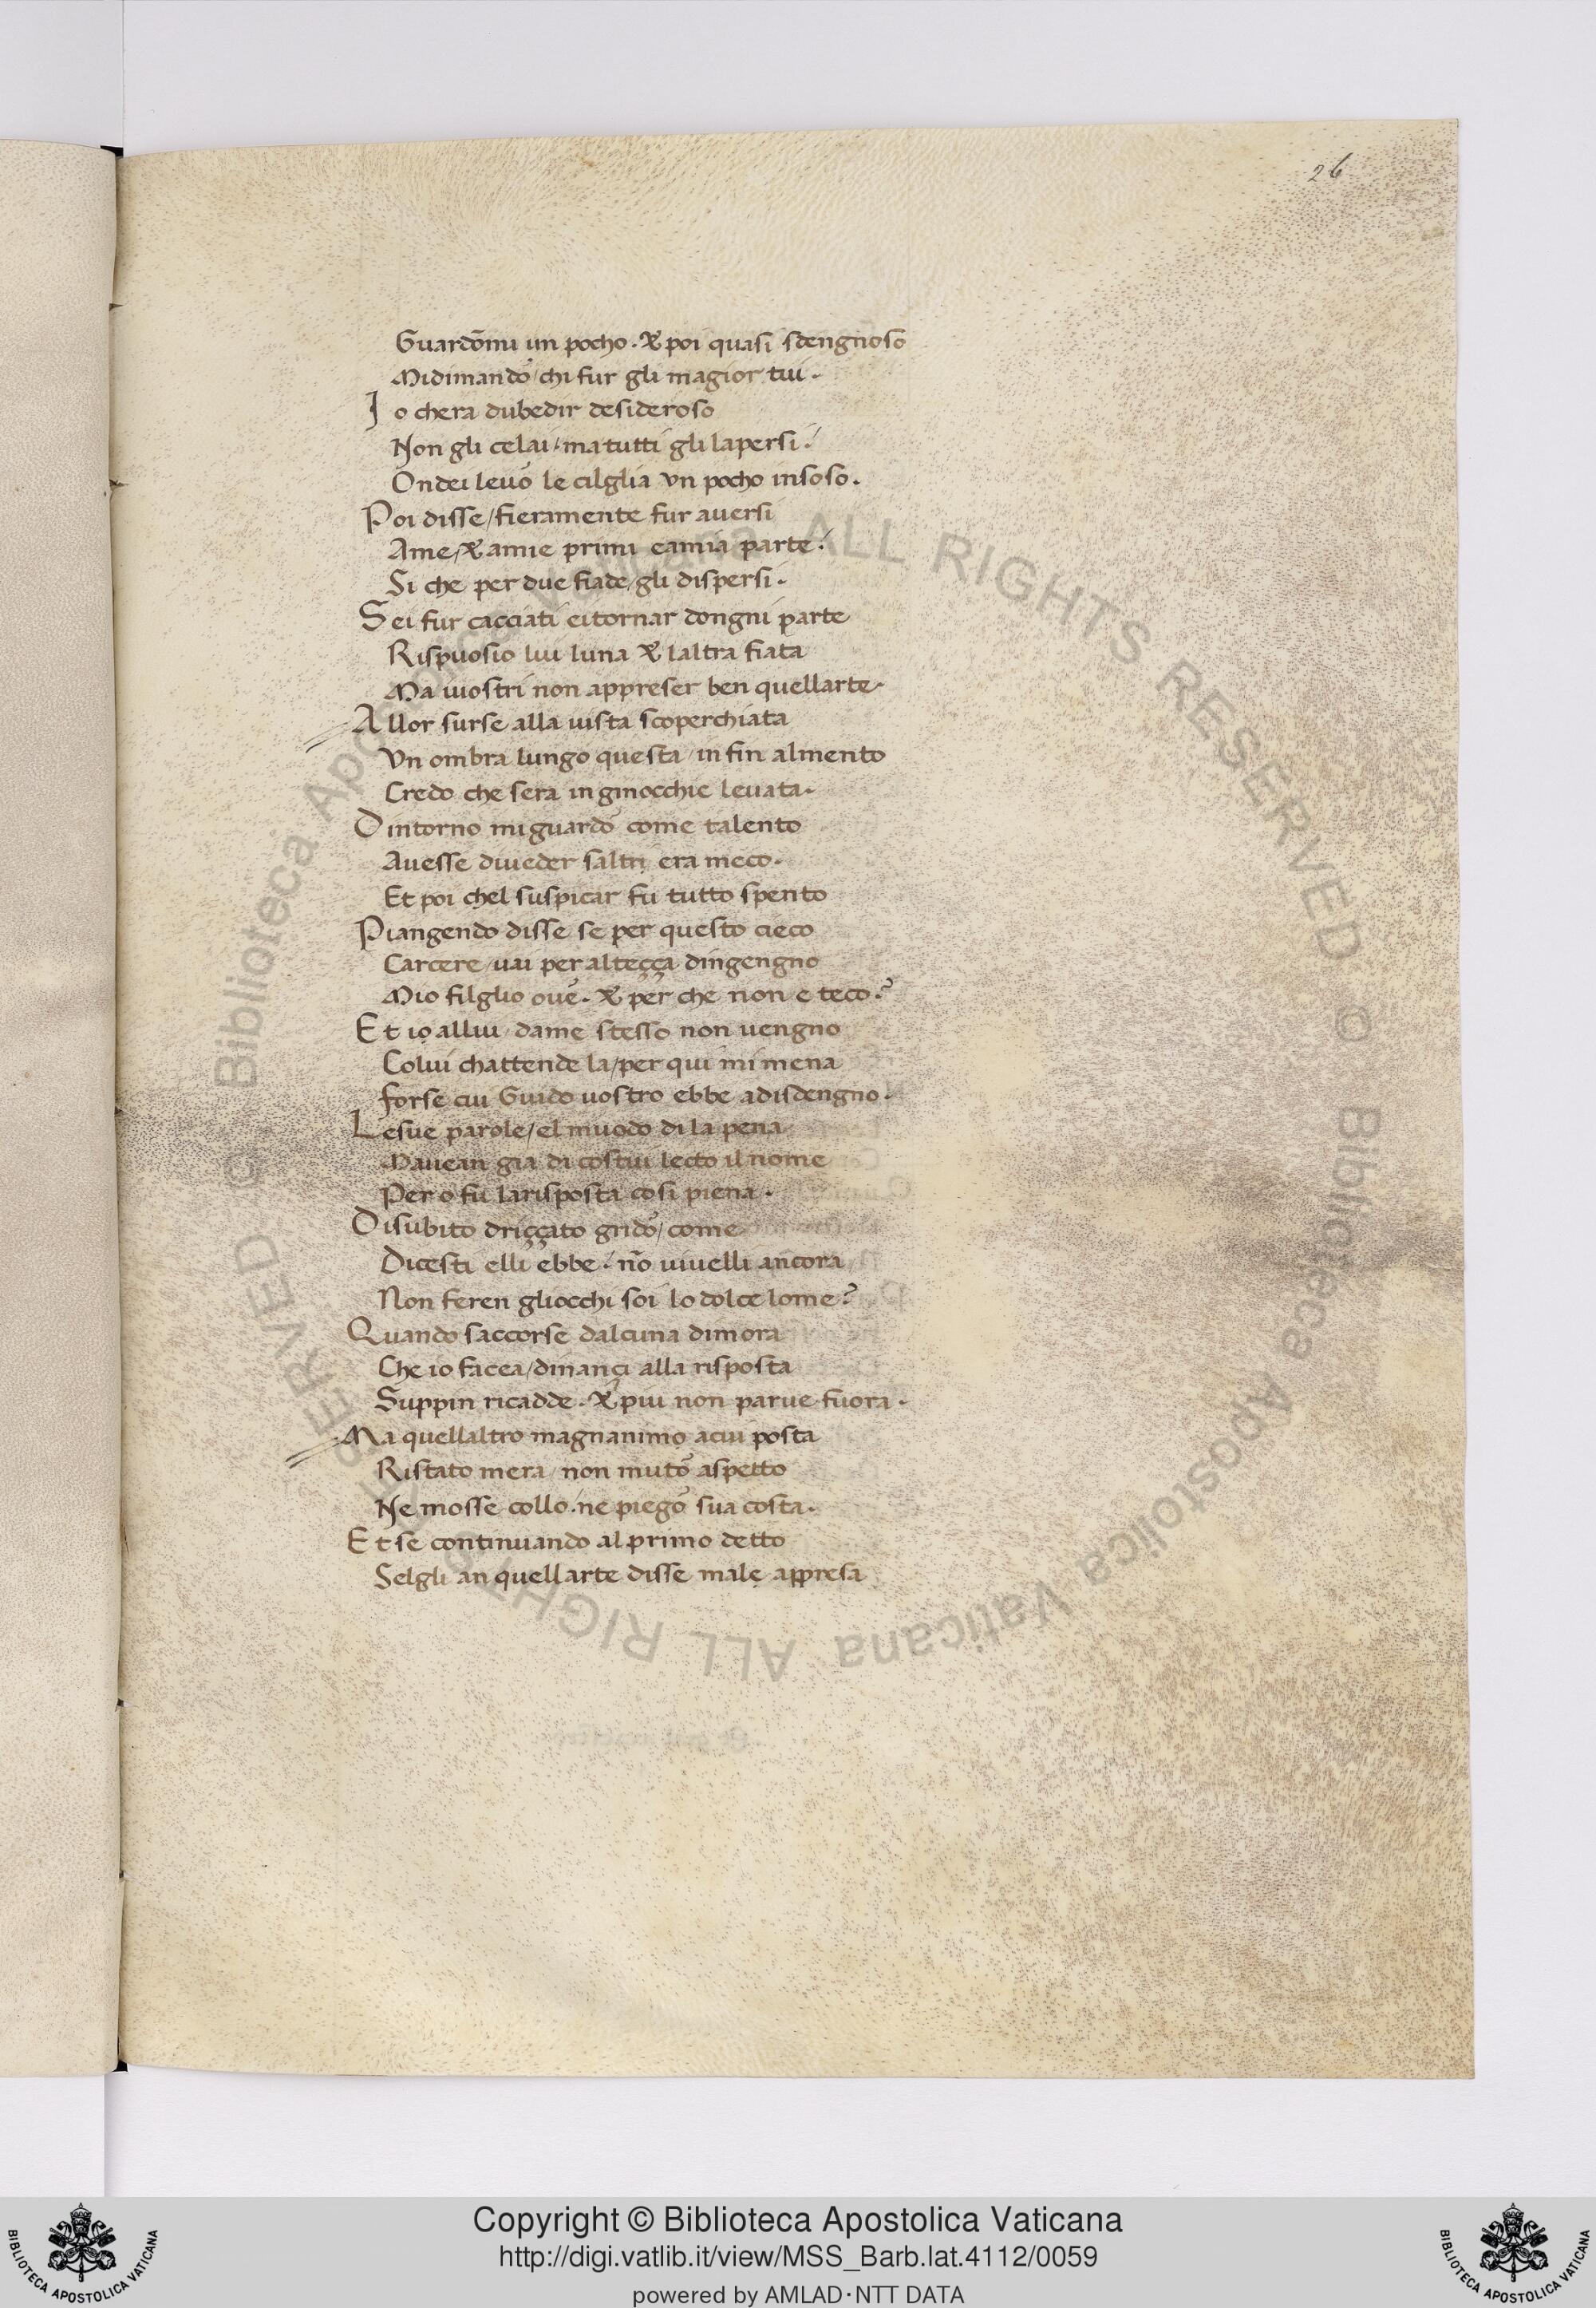 26
Guardōmi un pocho · & poi quasi sdengnoso
Midimandò / chi fur gli magior tui ·
Io chera dubedir desideroso
Non gli celai / ma tutti gli lapersi ·
Ondei levò le cilglia vn pocho insoso ·
Poi disse / fieramente fur auersi
Ame / & amie primi eamia parte ·
Si che per due fiade / gli dispersi ·
Sei fur cacciati eitornar dongni parte
Rispuosio lui luna & laltra fiata
Ma iuostri non appreser ben quellarte ·
Allor surse alla uista scoperchiata
Vn ombra lungo questa / in fin almento
Credo che sera in ginocchie leuata ·
Dintorno miguardò come talento
Auesse diueder saltri era meco ·
Et poi chel suspicar fu tutto spento
Piangendo disse se per questo cieco
Carcere / uai per alteçça dingengno
Mio filglio oue · & per che non e teco ?
Et io allui / dame stesso non uengno
Colui chattende la / per qui mi mena
forse cui Guido uostro ebbe adisdengno ·
Lesue parole / el muodo di la pena
Mauean gia di costui lecto il nome
Per o fu larisposta cosi piena ·
Disubito driççato gridò / come
Dicesti elli ebbe · nō viuelli ancora
Non feren gliocchi soi lo dolce lome ?
Quando saccorse dalcuna dimora
Che io facea / dinançi alla risposta
Suppin ricadde · & piu non parue fuora ·
Ma quellaltro magnanimo acui posta
Ristato mera / non mutò aspetto
Ne mosse collo · ne piegò sua costa ·
Et se continuando al primo detto
Selgli an quellarte disse male appresa
© Biblioteca Apostolica Vaticana ALL RIGHTS RESERVED © Biblioteca Apostolica Vaticana ALL RIGHTS RESERVED
Copyright © Biblioteca Apostolica Vaticana
http://digi.vatlib.it/view/MSS_Barb.lat.4112/0059
powered by AMLAD·NTT DATA
BIBLIOTECA APOSTOLICA VATICANA
BIBLIOTECA APOSTOLICA VATICANA